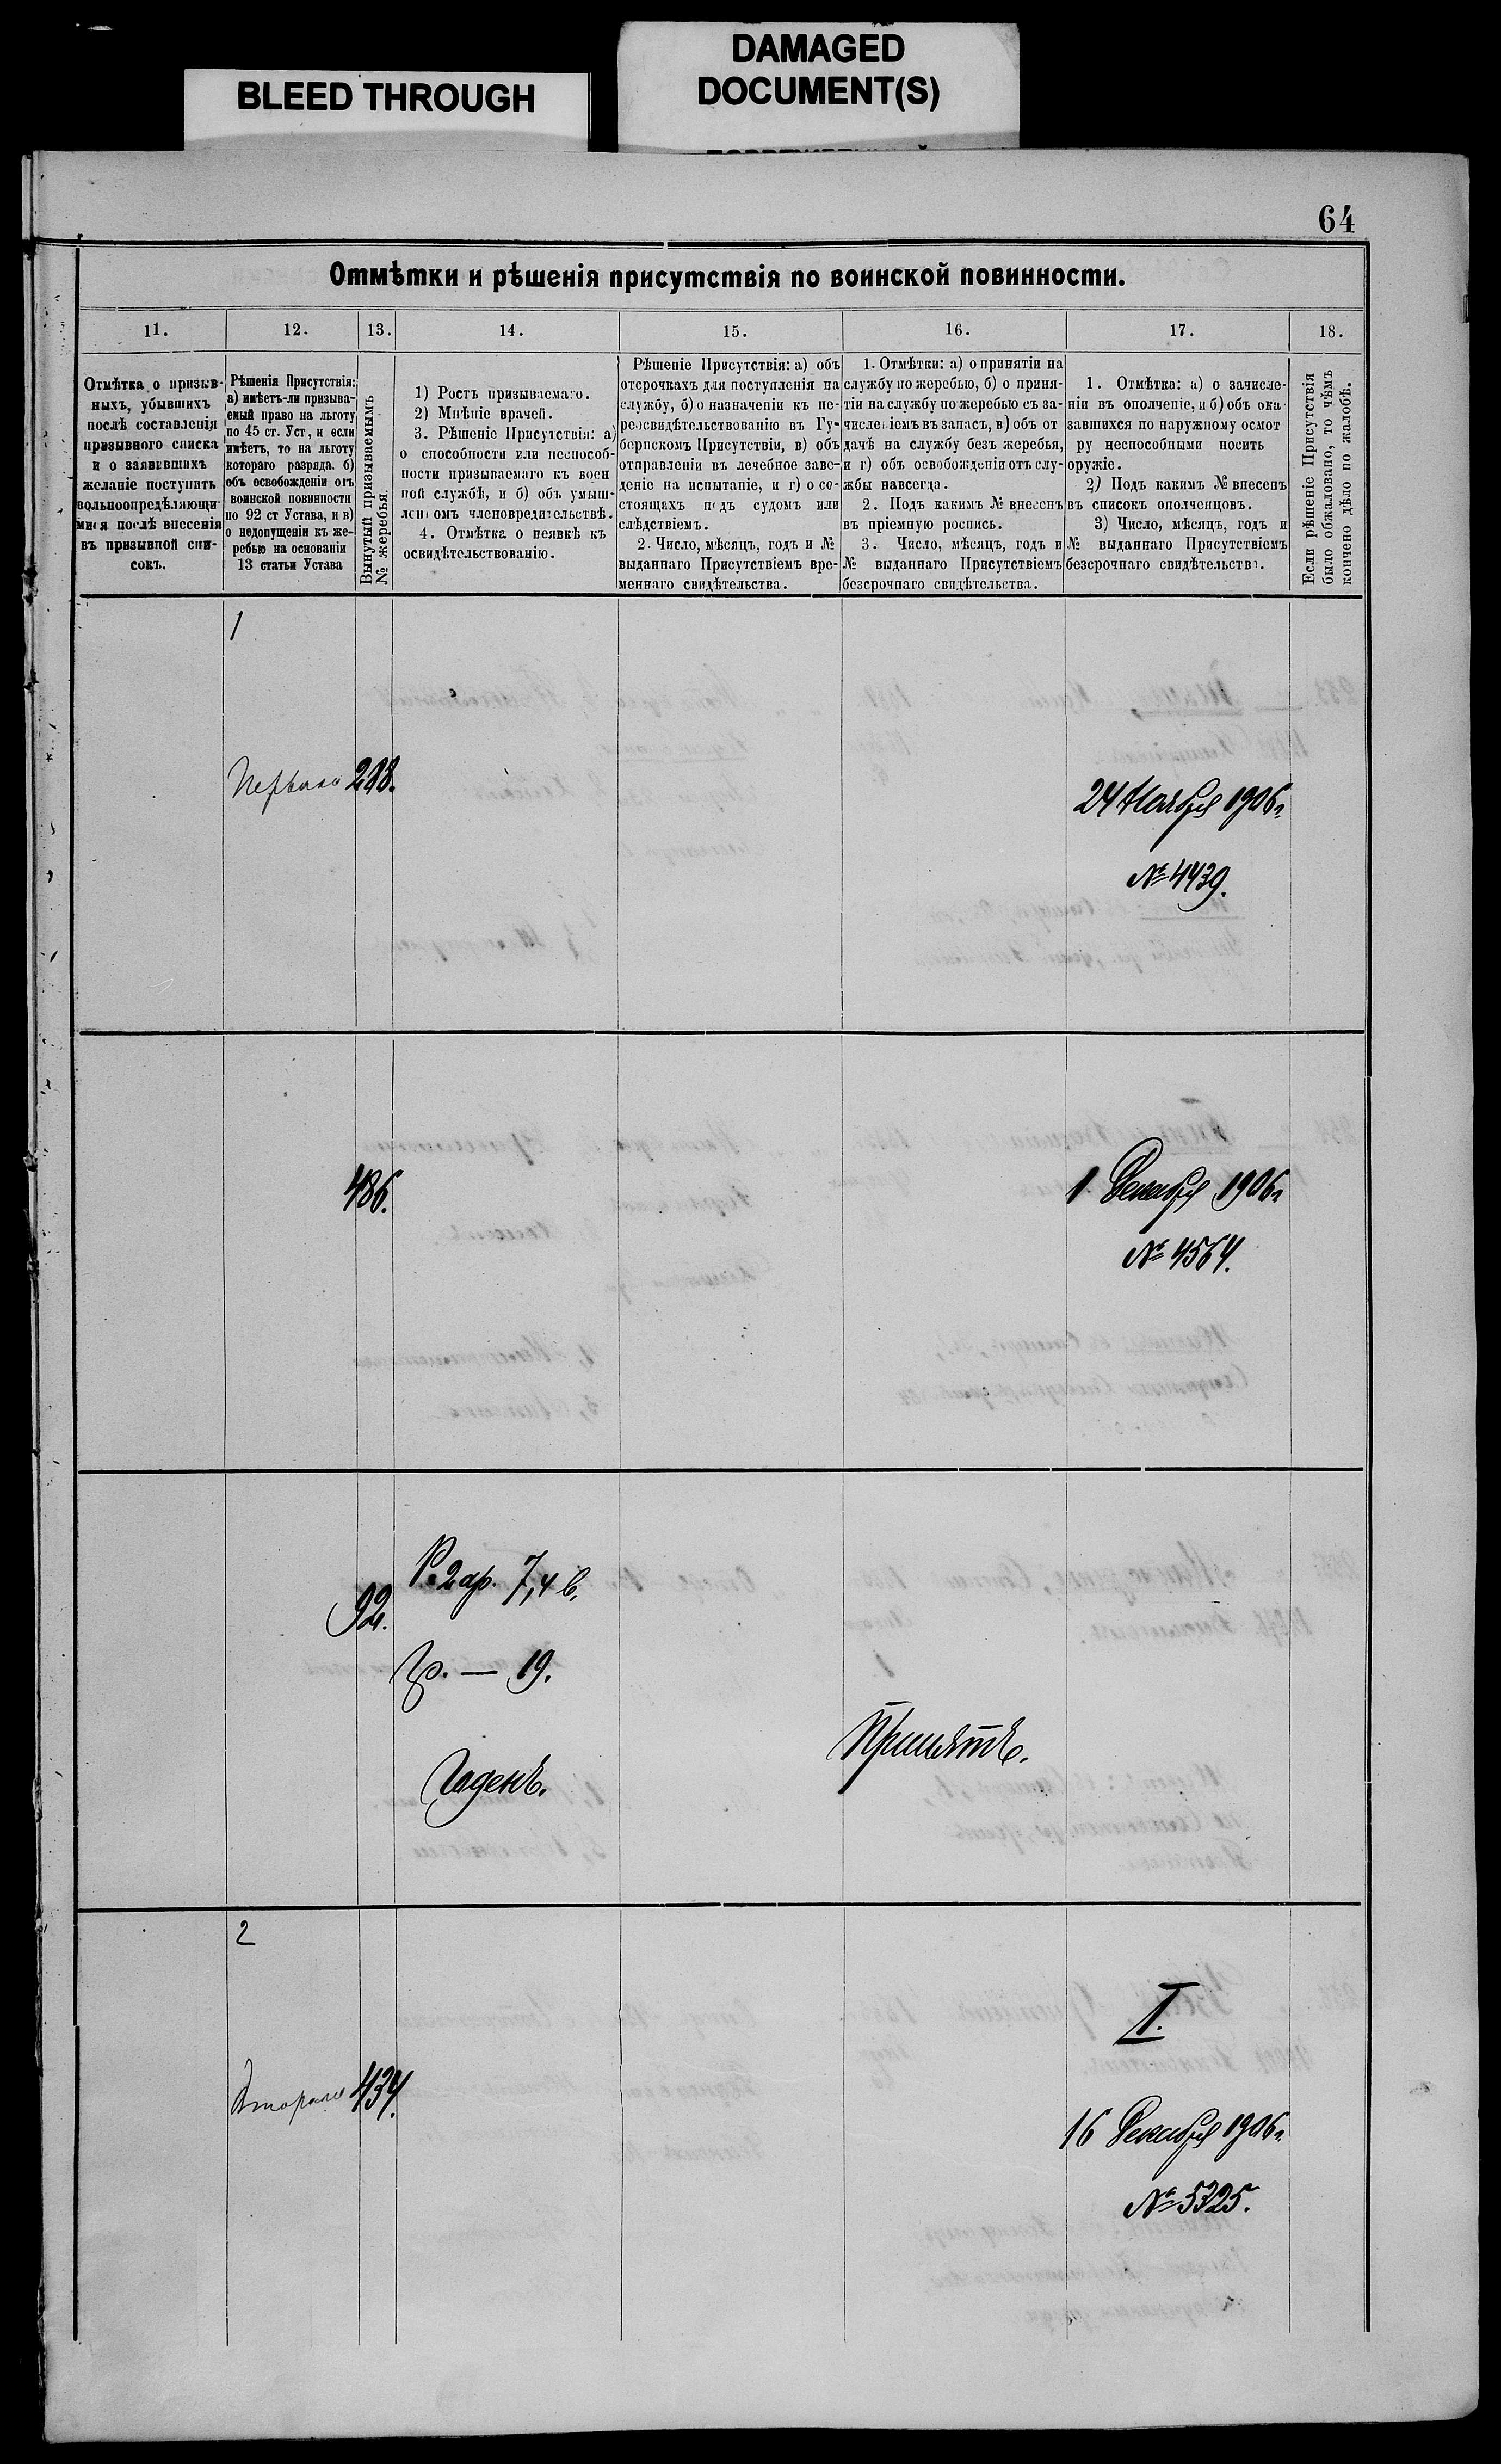 BLEED THROUGH
DAMAGED
DOCUMENT(S)
64
Отмѣтки и рѣшенія присутствія по воинской повинности.
11.
12.
13.
14.
15.
16.
17.
18.
Отмѣтка о призыв-
ныхъ, убывшихъ
послѣ составленія
призывного списка
и о заявившихъ
желаніе поступить
вольноопредѣляющи-
мися послѣ внесенія
въ призывной спи-
сокъ.
Рѣшенія Присутствія:
а) имѣетъ-ли призыва-
емый право на льготу
по 45 ст. Уст, и если
имѣетъ, то на льготу
котораго разряда, б)
объ освобожденіи отъ
воинской повинности
по 92 ст Устава, и в)
о недопущеніи къ же-
ребью на основаніи
13 статьи Устава
Вынутый призываемымъ
№ жеребья.
1) Ростъ призываемаго.
2) Мнѣніе врачей.
3. Рѣшеніе Присутствія: а)
о способности или неспособ-
ности призываемаго къ воен
ной службѣ, и б) объ умыш-
ленномъ членовредительствѣ.
4. Отмѣтка о неявкѣ къ
освидѣтельствованію.
Рѣшеніе Присутствія: а) объ
отсрочкахъ для поступленія на
службу, б) о назначеніи къ пе-
реосвидѣтельствованію въ Гу-
бернскомъ Присутствіи, в) объ
отправленіи въ лечебное заве-
деніе на испытаніе, и г) о со-
стоящихъ подъ судомъ или
слѣдствіемъ.
2. Число, мѣсяцъ, годъ и №
выданнаго Присутствіемъ вре-
меннаго свидѣтельства.
1. Отмѣтки: а) о принятіи на
службу по жеребью, б) о приня-
тіи на службу по жеребью съ за-
численіемъ въ запасъ, в) объ от
дачѣ на службу безъ жеребья,
и г) объ освобожденіи отъ слу-
жбы навсегда.
2. Подъ какимъ № внесенъ
въ пріемную роспись.
3. Число, мѣсяцъ, годъ и
№ выданнаго Присутствіемъ
безсрочнаго свидѣтельства.
1. Отмѣтка: а) о зачисле-
ніи въ ополченіе, и б) объ ока-
завшихся по наружному осмот
ру неспособными носить
оружіе.
2) Подъ какимъ № внесенъ
въ списокъ ополченцовъ.
3) Число, мѣсяцъ, годъ и
№ выданнаго Присутствіемъ
безсрочнаго свидѣтельства.
Если рѣшеніе Присутствія
было обжаловано, то чѣмъ
кончено дѣло по жалобѣ.
1
Перваго
288.
24 Ноября 1906 г.
№ 4439.
486.
1 Декабря 1906 г.
№ 4564.
92.
Р. 2 ар. 7,4 в.
Гр. — 19.
Годенъ.
Принятъ.
2
Второго
434.
I.
16 Декабря 1906 г.
№ 5325.